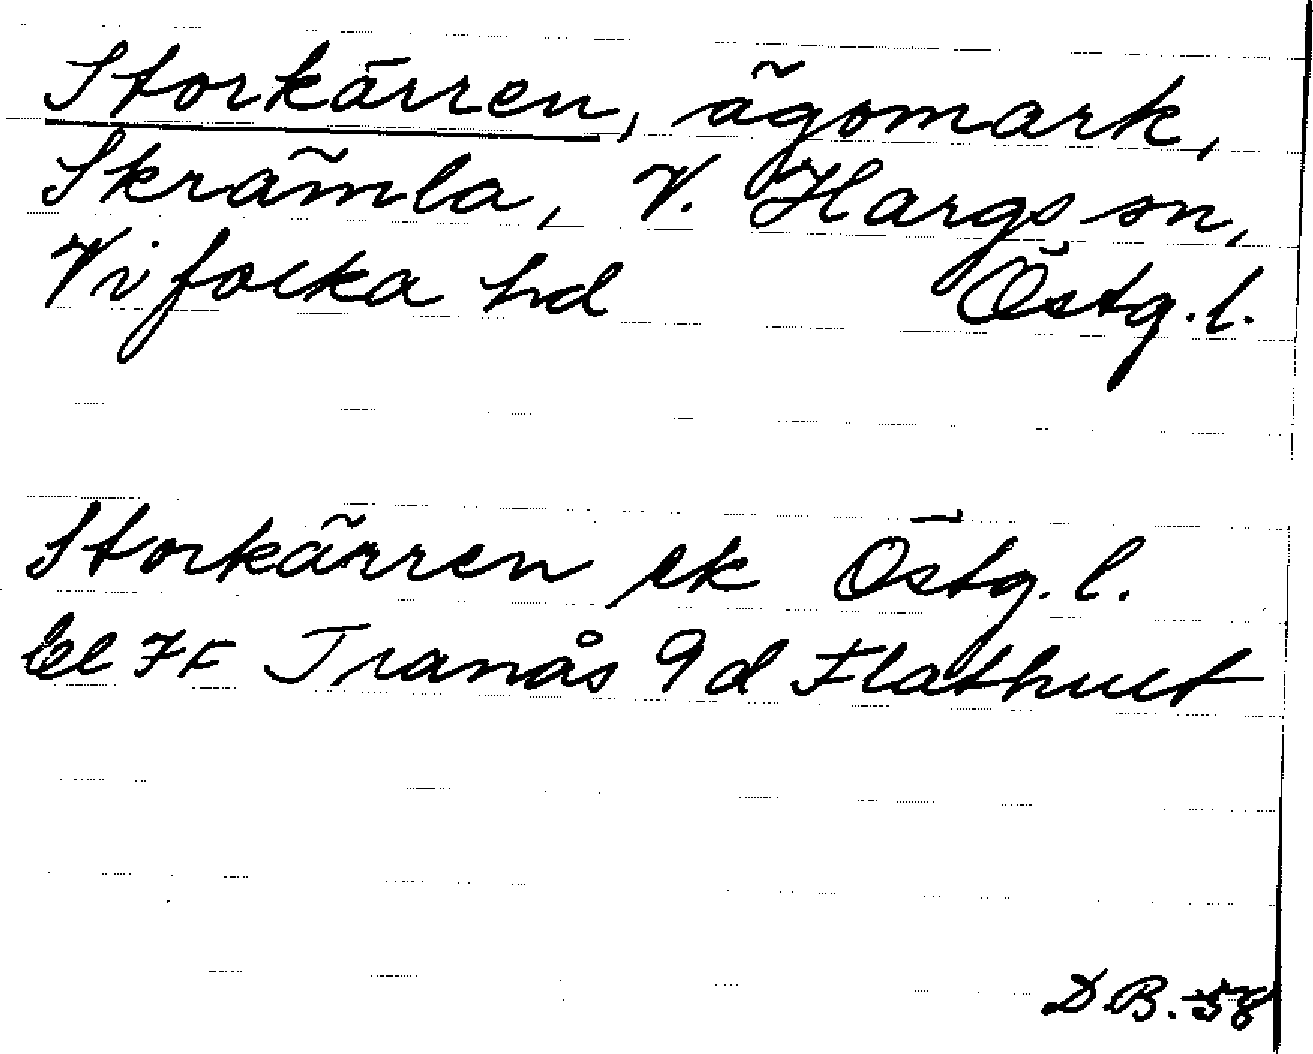 Storkärren, ägomark,
Skrämla, V. Hargs sn,
Vifolka hd Östg. l.
Storkärren ek Östg. l.
bl 7F Tranås 9d Flathult
D.B. -58